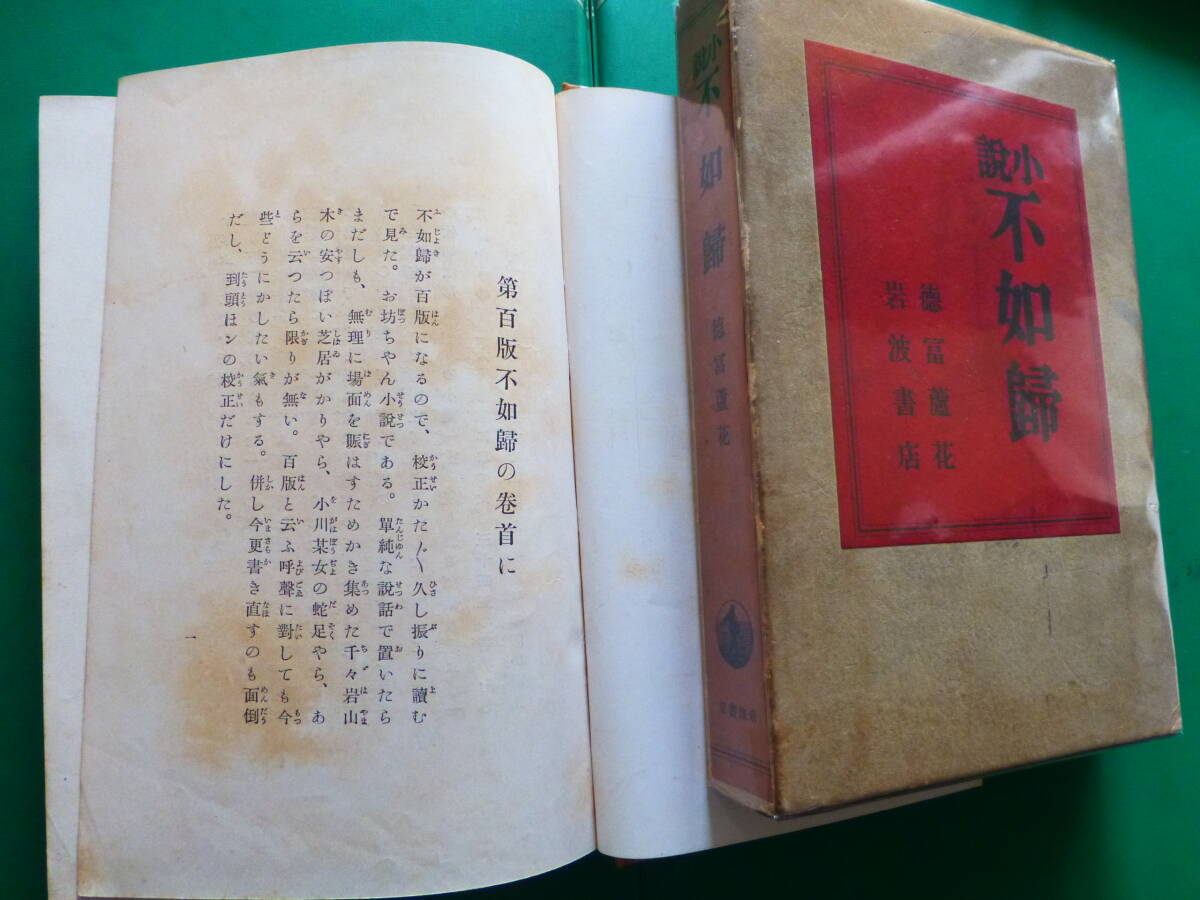 第百版不如歸の卷首に
不如歸が百版になるので、校正かた〴〵久し振りに讀む
で見た。お坊ちやん小說である。單純な說話で置いたら
まだしも、無理に場面を賑はすためかき集めた千々岩山
木の安つぽい芝居がかりやら、小川某女の蛇足やら、あ
らを云つたら限りが無い。百版と云ふ呼聲に對しても今
些どうにかしたい氣もする。併し今更書き直すのも面倒
だし、到頭ほンの校正だけにした。
一
小說
不如歸
德冨蘆花
小說
不如歸
德冨蘆花
岩波書店